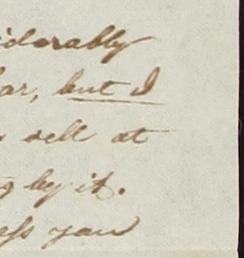 iderably
ar, but I
sell at
g by it.
ess you